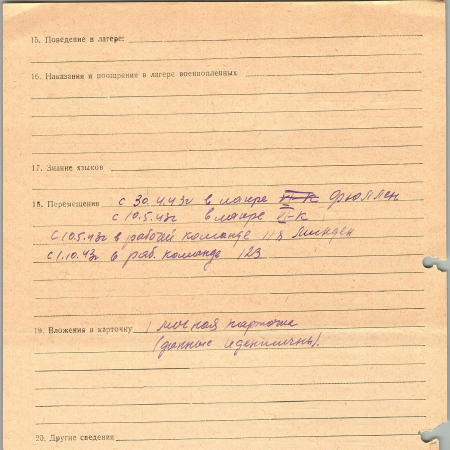 15. Поведение в лагере:
16. Наказания и поощрения в лагере военнопленных
17. Знание языков
18. Перемещения с 30.4.43г в лагере VI-К Фрюллен
с 10.5.43г в лагере VI-К
с 10.5.43г в рабочей команде 118 Минден
с 1.10.43г в раб. команде 123
19. Вложения в карточку 1 личная карточка
(данные идентичны).
20. Другие сведения